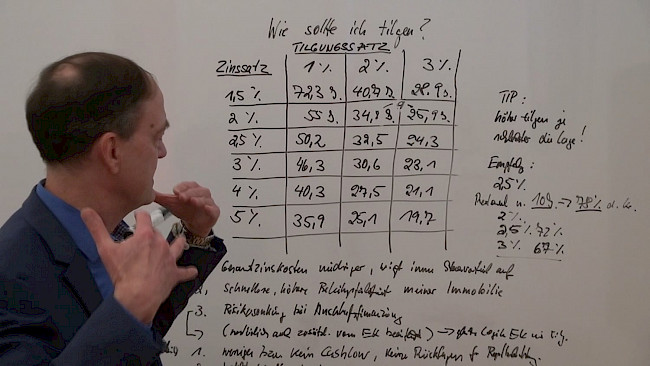 Wie sollte ich tilgen?
TILGUNGSSATZ
Zinssatz 1% 2% 3%
1,5% 72,3 J. 40,7 J. 28,9 J.
2% 55 J. 34,8 J. 25,9 J.
2,5% 50,2 32,5 24,3
3% 46,3 30,6 23,1
4% 40,3 27,5 21,1
5% 35,9 25,1 19,7
TIP:
höher tilgen je
die Lage!
Empfehlg:
2,5%
n. 10J. → 78% d. Kr.
2%
2,5% 72%
3% 67%
Gesamtzinskosten niedriger, wiegt immer Steuervorteil auf
2, schnellere, höhere meiner Immobilie
3. Risikosenkung bei Anschlußfinanzierung
vom EK
1. weniger bzw kein Cashflow, keine Rücklagen f.